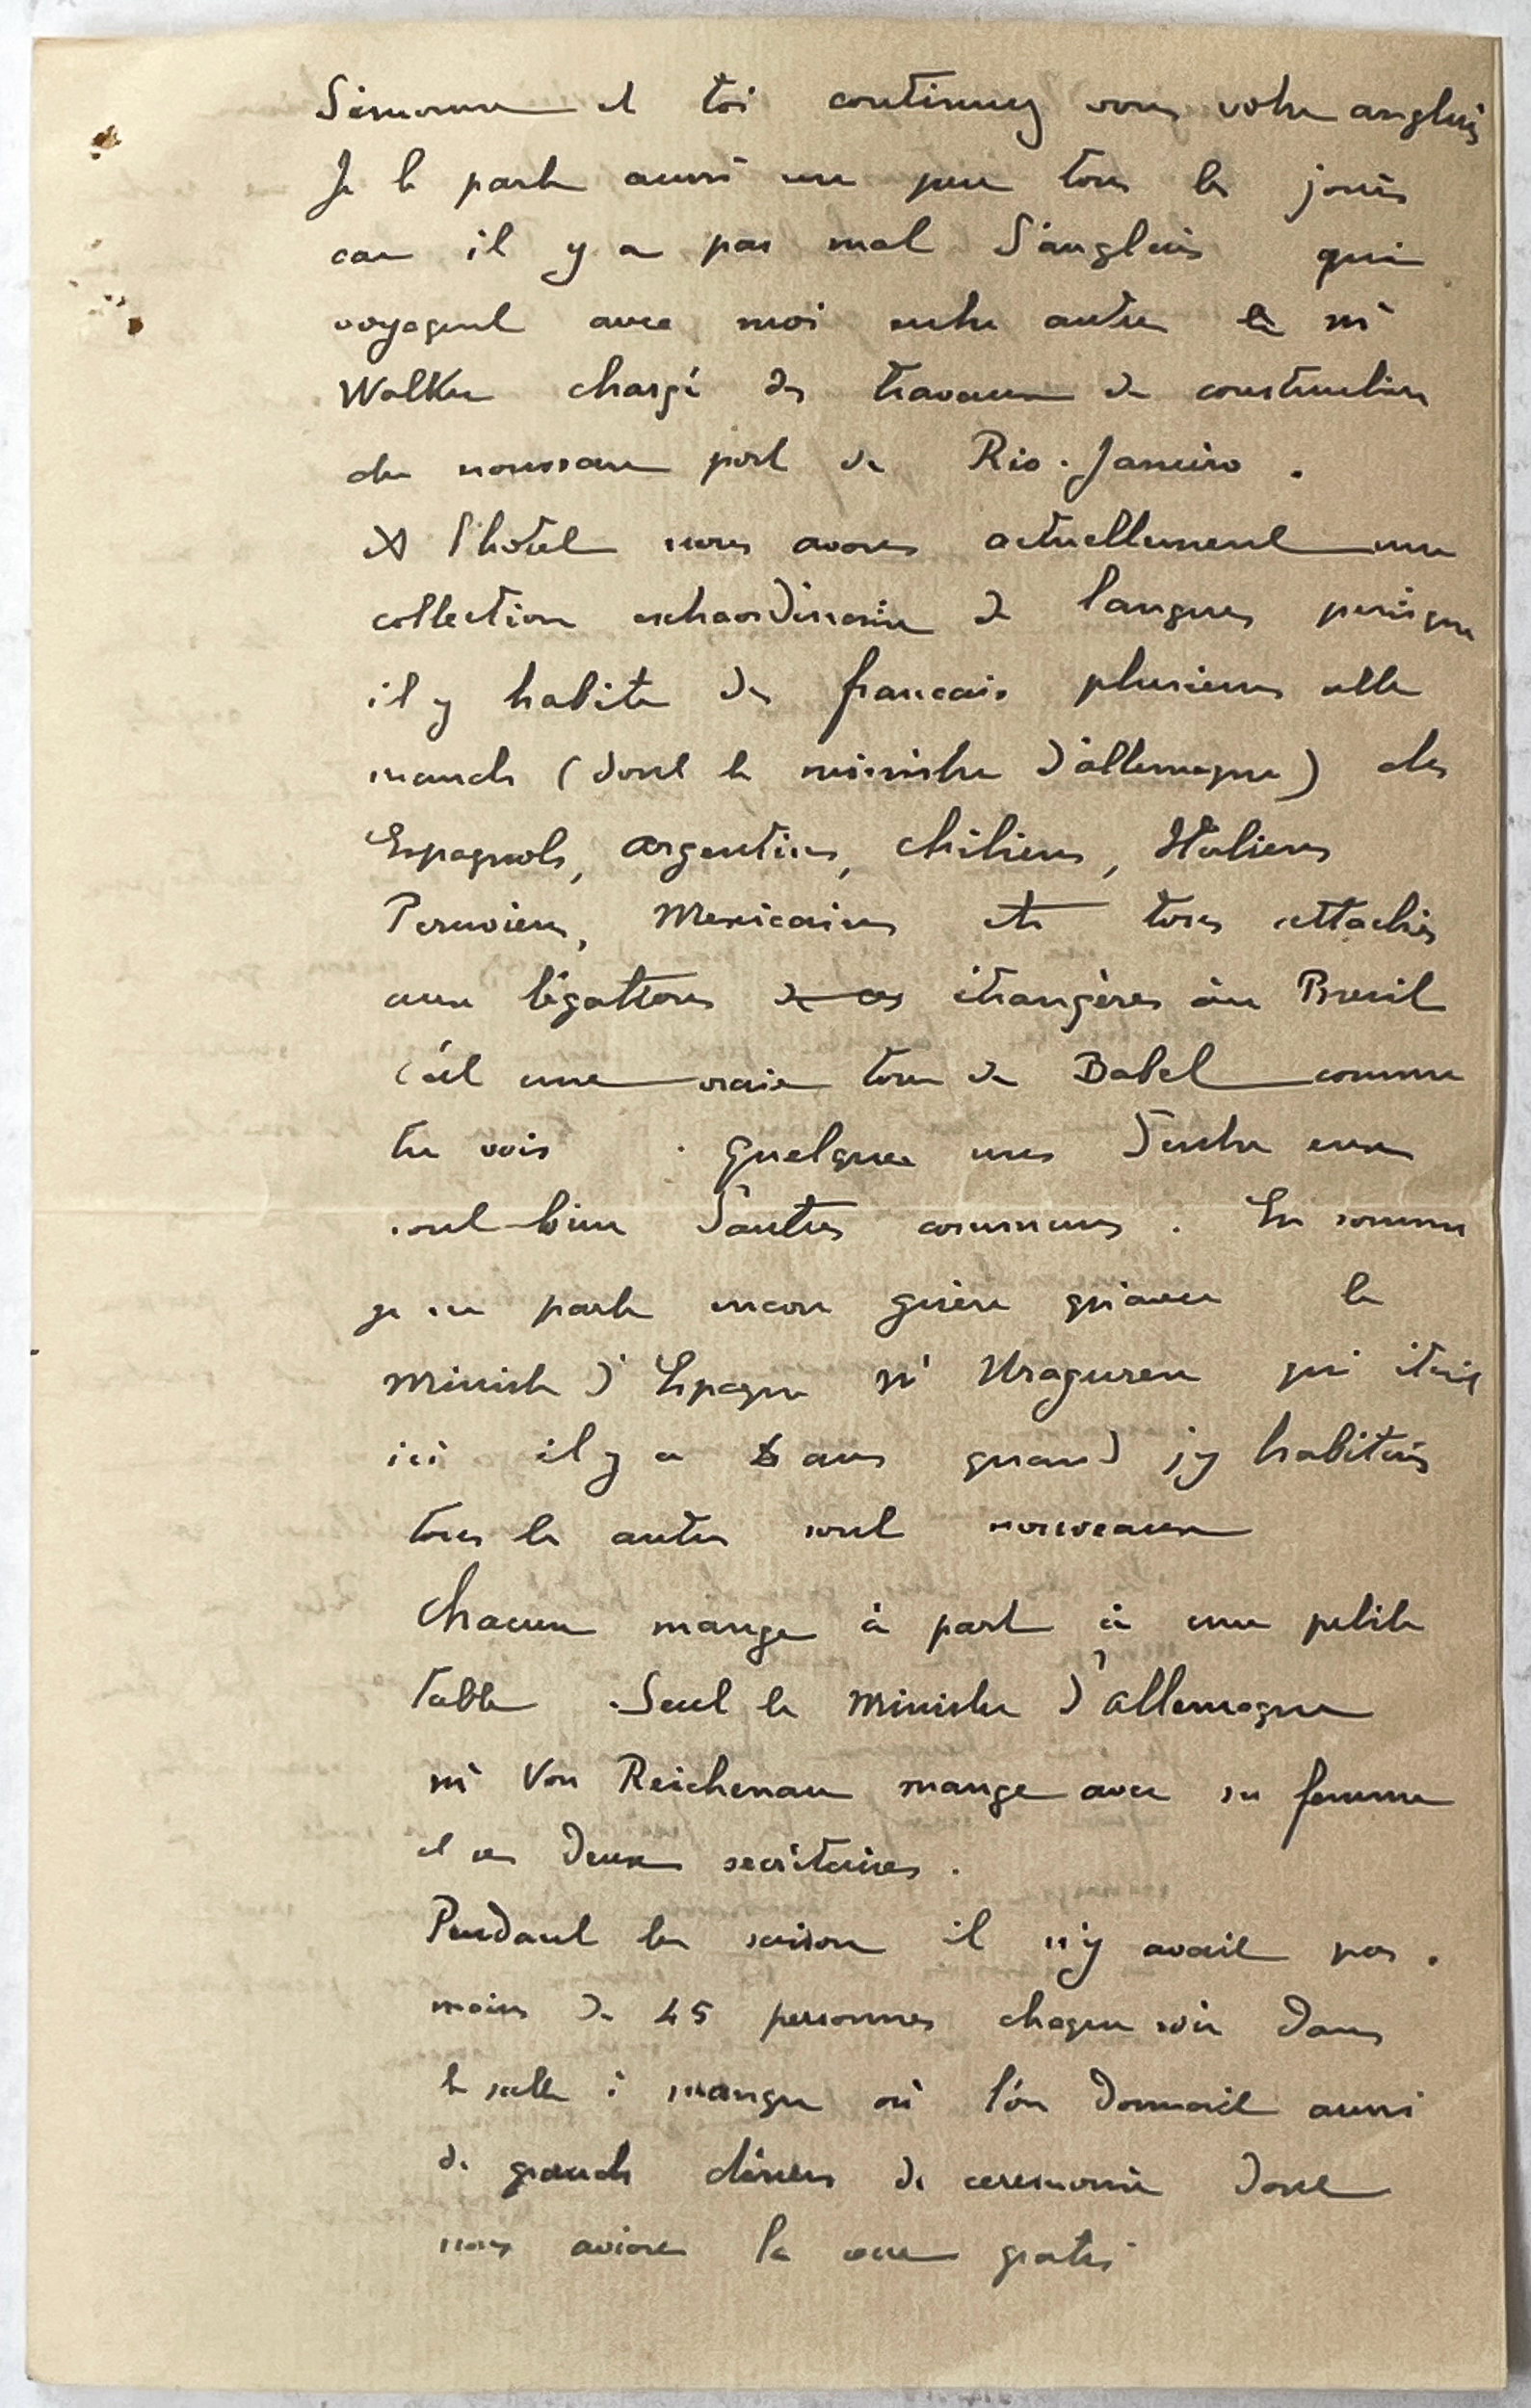 Simonne et toi continuez vous votre anglais
Je le parle aussi un peu tous les jours
car il y a pas mal d'anglais qui
voyagent avec moi entre autre le mr
Walker chargé des travaux de construction
du nouveau port de Rio-Janeiro.
A l'hôtel nous avons actuellement une
collection extraordinaire de langues puisque
il y habite des francais plusieurs alle
mands (dont le ministre d'allemagne) des
Espagnols, argentins, chiliens, Italiens
Peruviens, Mexicains etc tous attachés
aux légations de ces étrangères au Bresil
c'est une vraie tour de Babel comme
tu vois. quelques uns d'entre eux
sont bien d'autres communs. En somme
je ne parle encore guère qu'avec le
ministre d'Espagne mr Uraguren qui était
ici il y a ans quand j'y habitais
tous les autres sont nouveaux
Chacun mange à part à une petite
table. Seul le Ministre d'allemagne
mr Von Reichenau mange avec sa femme
et ses deux secrétaires.
Pendant la saison il n'y avait pas.
moins de 45 personnes chaque soir dans
la salle à manger où l'on donnait aussi
de grands dîners de ceremonie dont
nous avions la vue gratis